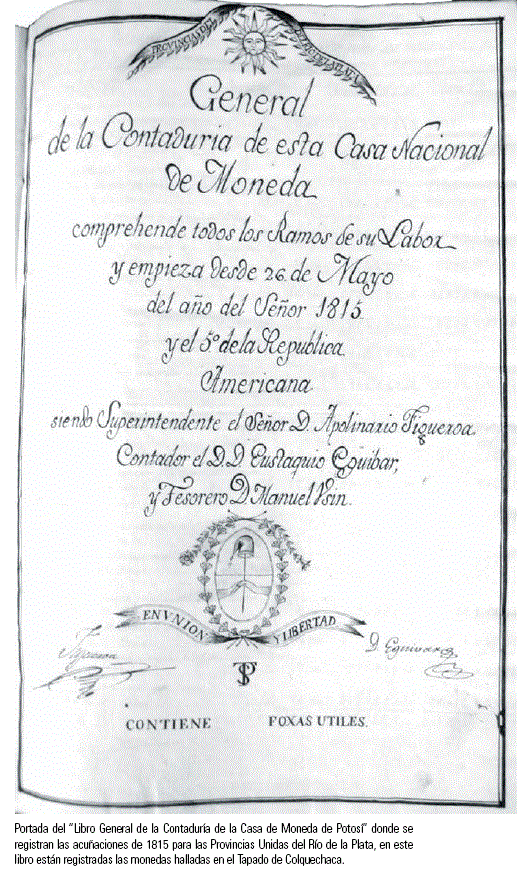 PROVINCIAS DEL RIO DE LA PLATA
General
de la Contaduria de esta Casa Nacional
de Moneda
comprehende todos los Ramos de su Labor
y empieza desde 26 de Mayo
del año del Señor 1815
y el 5º de la Republica
Americana
siendo Superintendente el Señor D. Apolinario Figueroa
Contador el D. D Eustaquio Eguibar,
y Tesorero D Manuel Ysin.
EN VNION Y LIBERTAD
Figueroa
D. Eguivar
PTS
CONTIENE FOXAS UTILES.
Portada del “Libro General de la Contaduría de la Casa de Moneda de Potosí” donde se
registran las acuñaciones de 1815 para las Provincias Unidas del Río de la Plata, en este
libro están registradas las monedas halladas en el Tapado de Colquechaca.